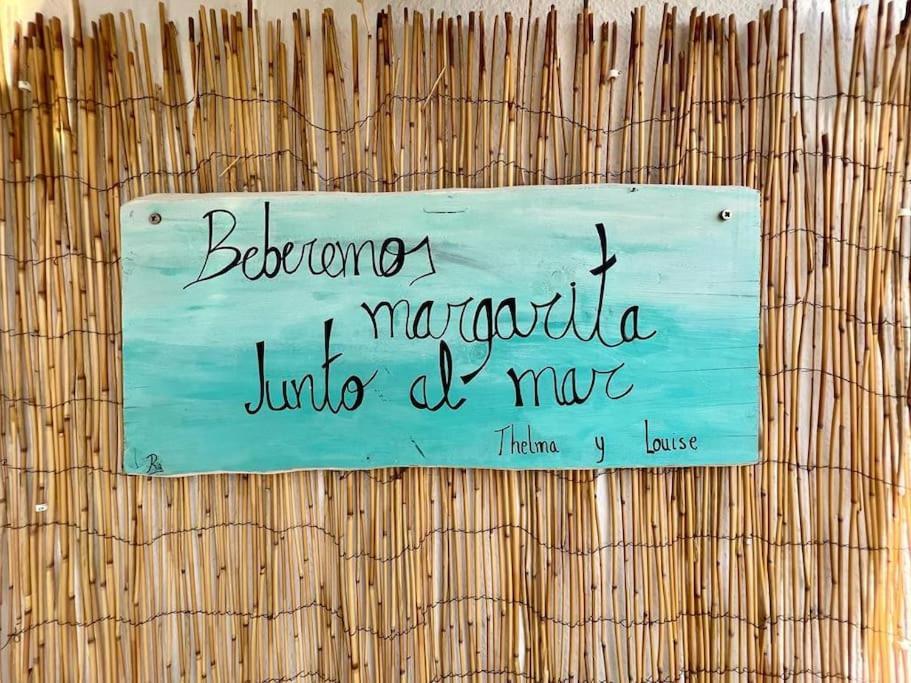 Beberemos
margarita
Junto al mar
Thelma y Louise